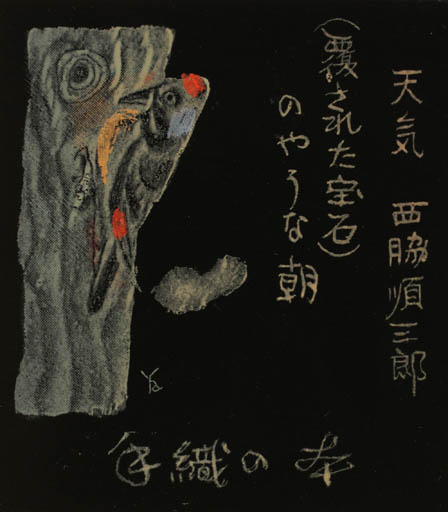 天気 西脇順三郎
(覆された宝石)
のやうな朝
手織の本